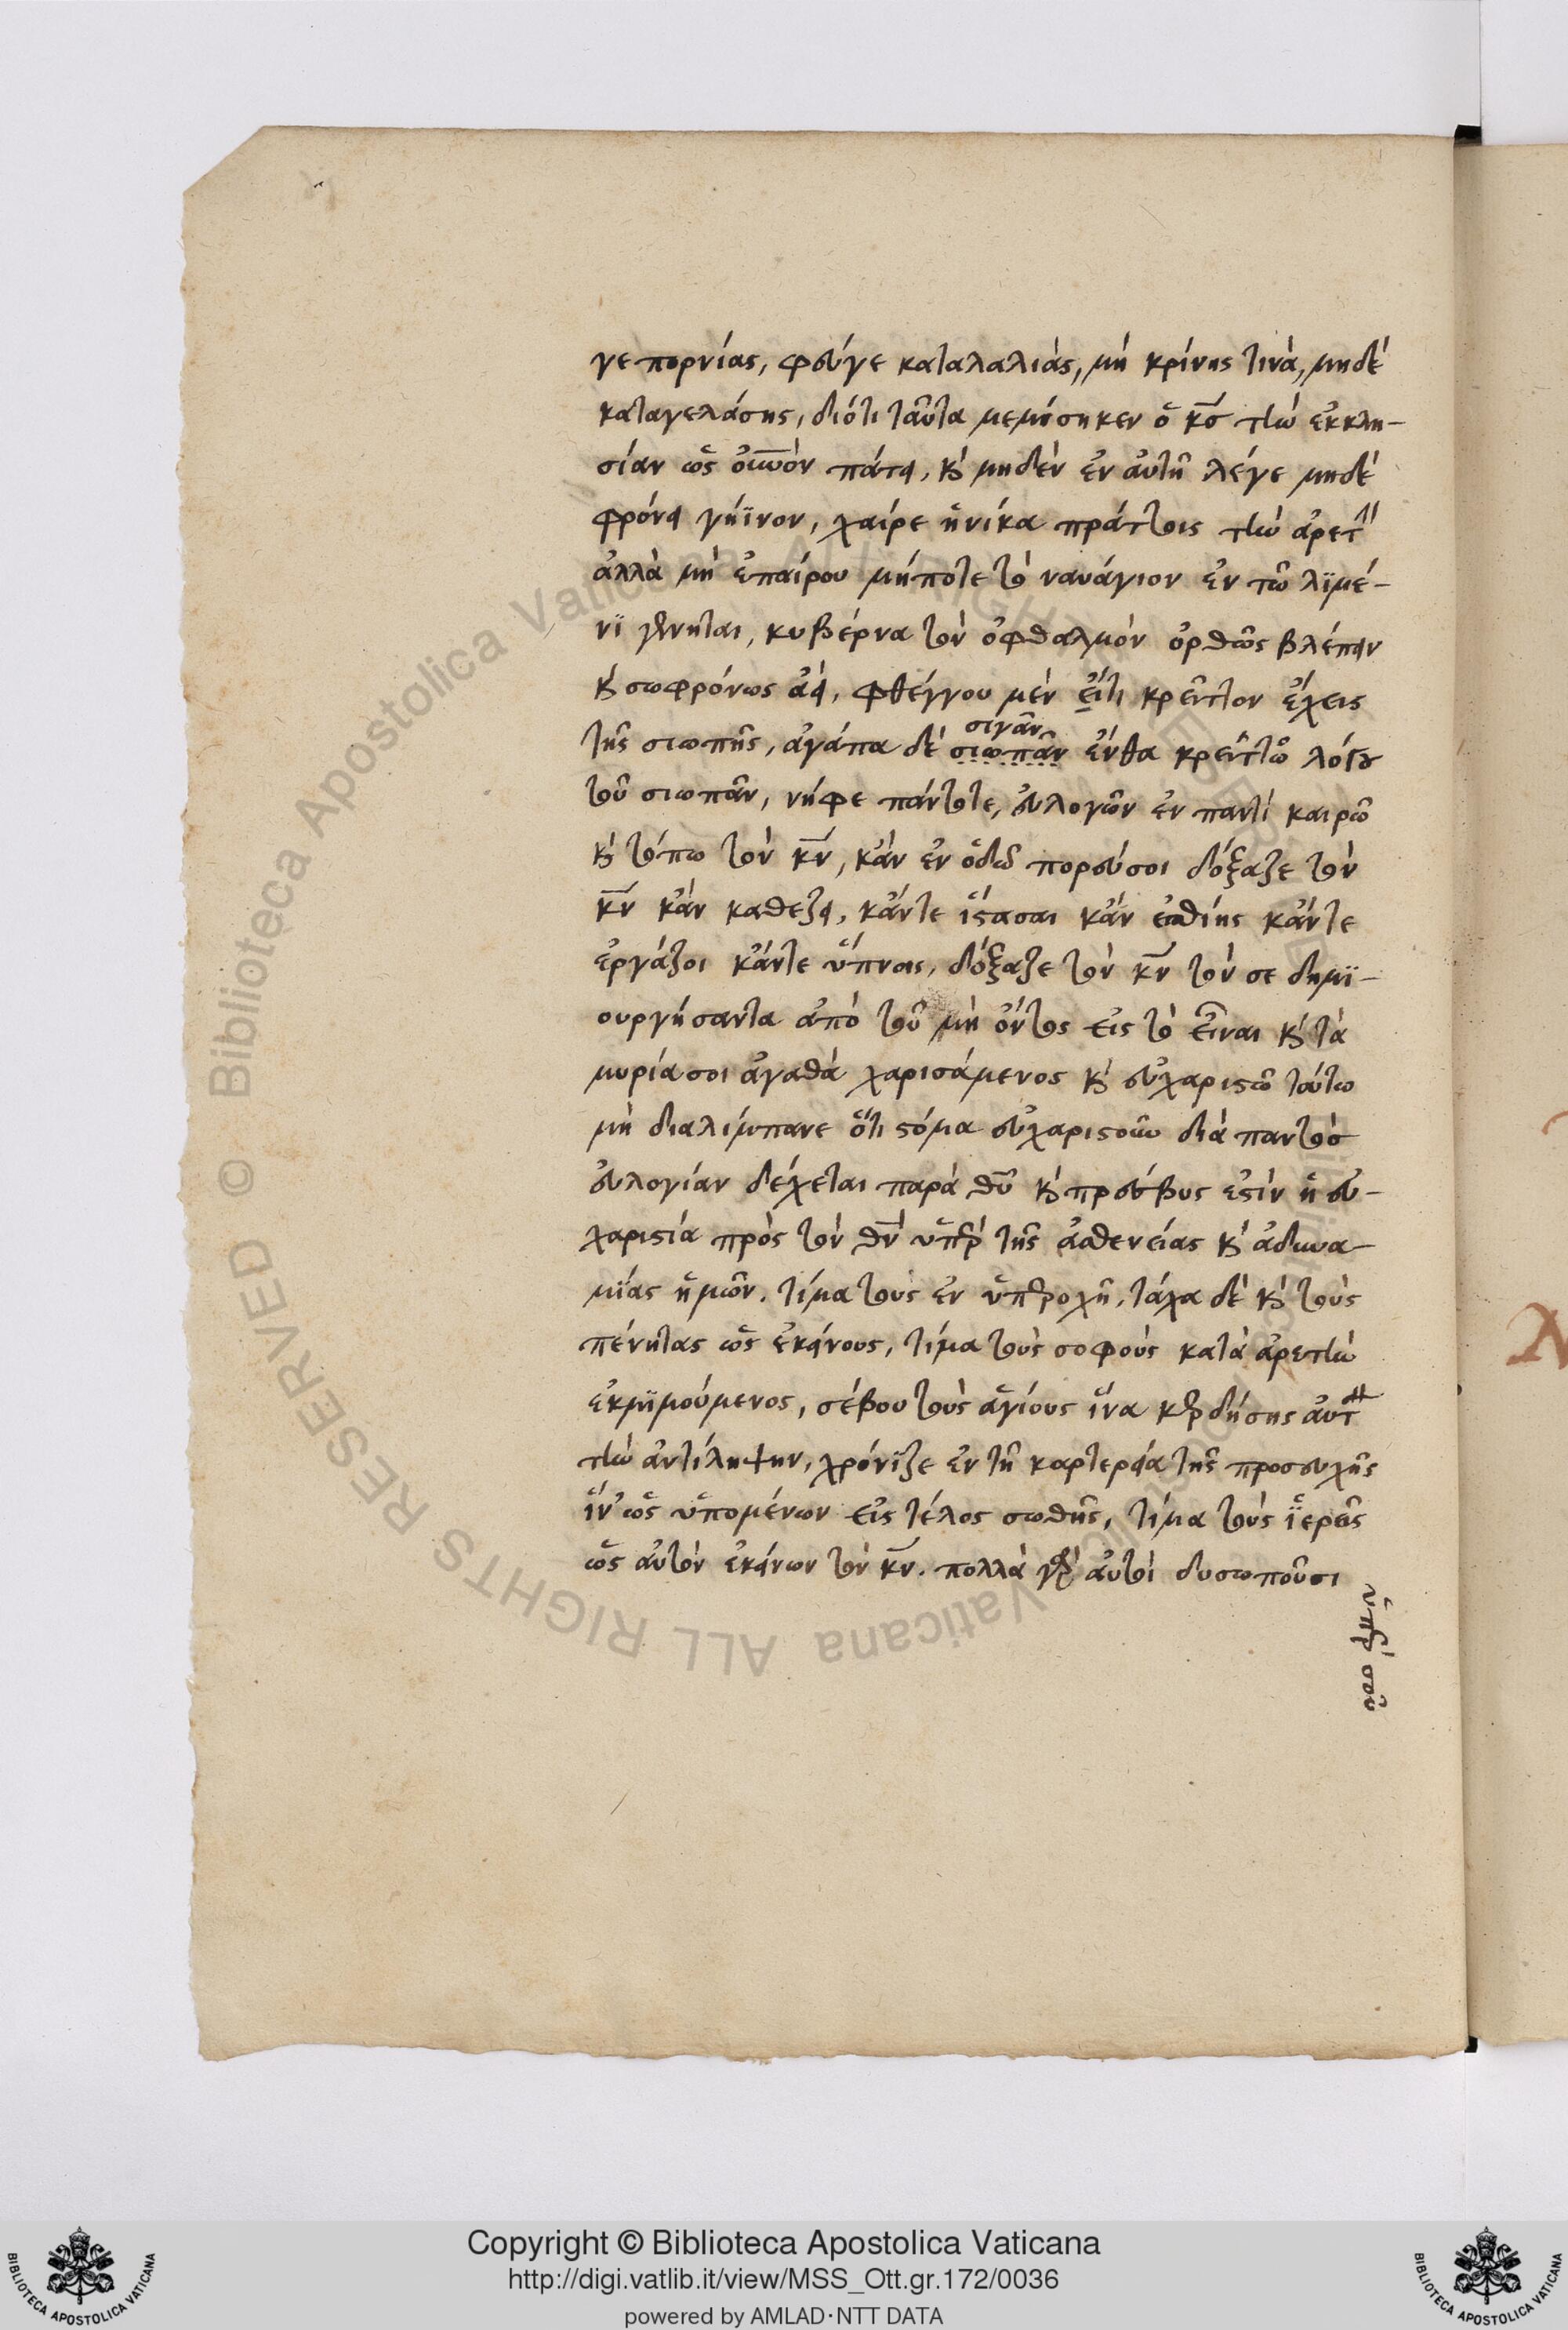 γε πορνίας, φεύγε καταλαλιάς, μή κρίνης τινὰ, μηδέ
καταγελάσης, διότι ταῦτα μεμίσηκεν ὁ κ̅ς τὴν ἐκκλη-
σίαν ὡς οὐ̅νὸν πάτει, κ̀ μηδὲν ἐν αὐτῆ λέγε μηδὲ
φρόνει γήϊνον, χαίρε ἡνίκα πράττοις τὴν ἀρετ
ἀλλὰ μὴ ἐπαίρου μήποτε τὸ ναυάγιον ἐν τῶ λϊμέ-
νϊ γένηται, κυβέρνα τὸν ὀφθαλμὸν ὀρθῶς βλέπειν
κ̀ σωφρόνως ἀεί, φθέγγου μὲν εἴτι κρεῖττον ἔχεις
τῆς σιωπῆς, ἀγάπα δὲ σιωπᾶν ἔνθα κρεῖττον λόγου
σιγᾶν
τοῦ σιωπᾶν, νήφε πάντοτε, εὐλογῶν ἐν παντὶ καιρῶ
κ̀ τόπω τὸν κ̅ν, κἂν ἐν ὁδῶ πορεύσοι δόξαζε τὸν
κ̅ν κἂν καθεζει, κἄντε ἵστασαι κἂν ἐσθίης κἄντε
ἐργάζοι κἄντε ὕπνοις, δόξαζε τὸν κ̅ν τόν σε δημϊ-
ουργήσαντα ἀπὸ τοῦ μὴ ὄντος εἰς τὸ εἶναι κ̀ τὰ
μυρία σοι ἀγαθὰ χαρισάμενος κ̀ εὐχαριστῶ τούτω
μὴ διαλίμπανε ὅτι στόμα εὐχαριστοῦν διὰ παντὸς
εὐλογίαν δέχεται παρὰ θ̅υ κ̀ πρεσβυς ἐστὶν ἡ εὐ-
χαριστία πρὸς τὸν θ̅ν ὑπὲρ τῆς ἀσθενείας κ̀ ἀδυνα-
μϊας ἡμῶν. τίμα τοὺς ἐν ὑπεροχῆ, τάχα δὲ κ̀ τοὺς
πένητας ὡς ἐκείνους, τίμα τοὺς σοφοὺς κατὰ ἀρετὴν
ἐκμϊμούμενος, σέβου τοὺς ἁγίους ἵνα κερδήσης αὐτ
τὴν ἀντίληψην, χρόνϊζε ἐν τῆ καρτερεία τῆς προσευχῆς
ἵν' ὡς ὑπομένων εἰς τέλος σωθῆς, τίμα τοὺς ἱερεῖς
ὡς αὐτὸν ἐκείνων τὸν κ̅ν. πολλὰ γὰρ αὐτοὶ δυσωποῦσι
ὑπὲρ σοῦ